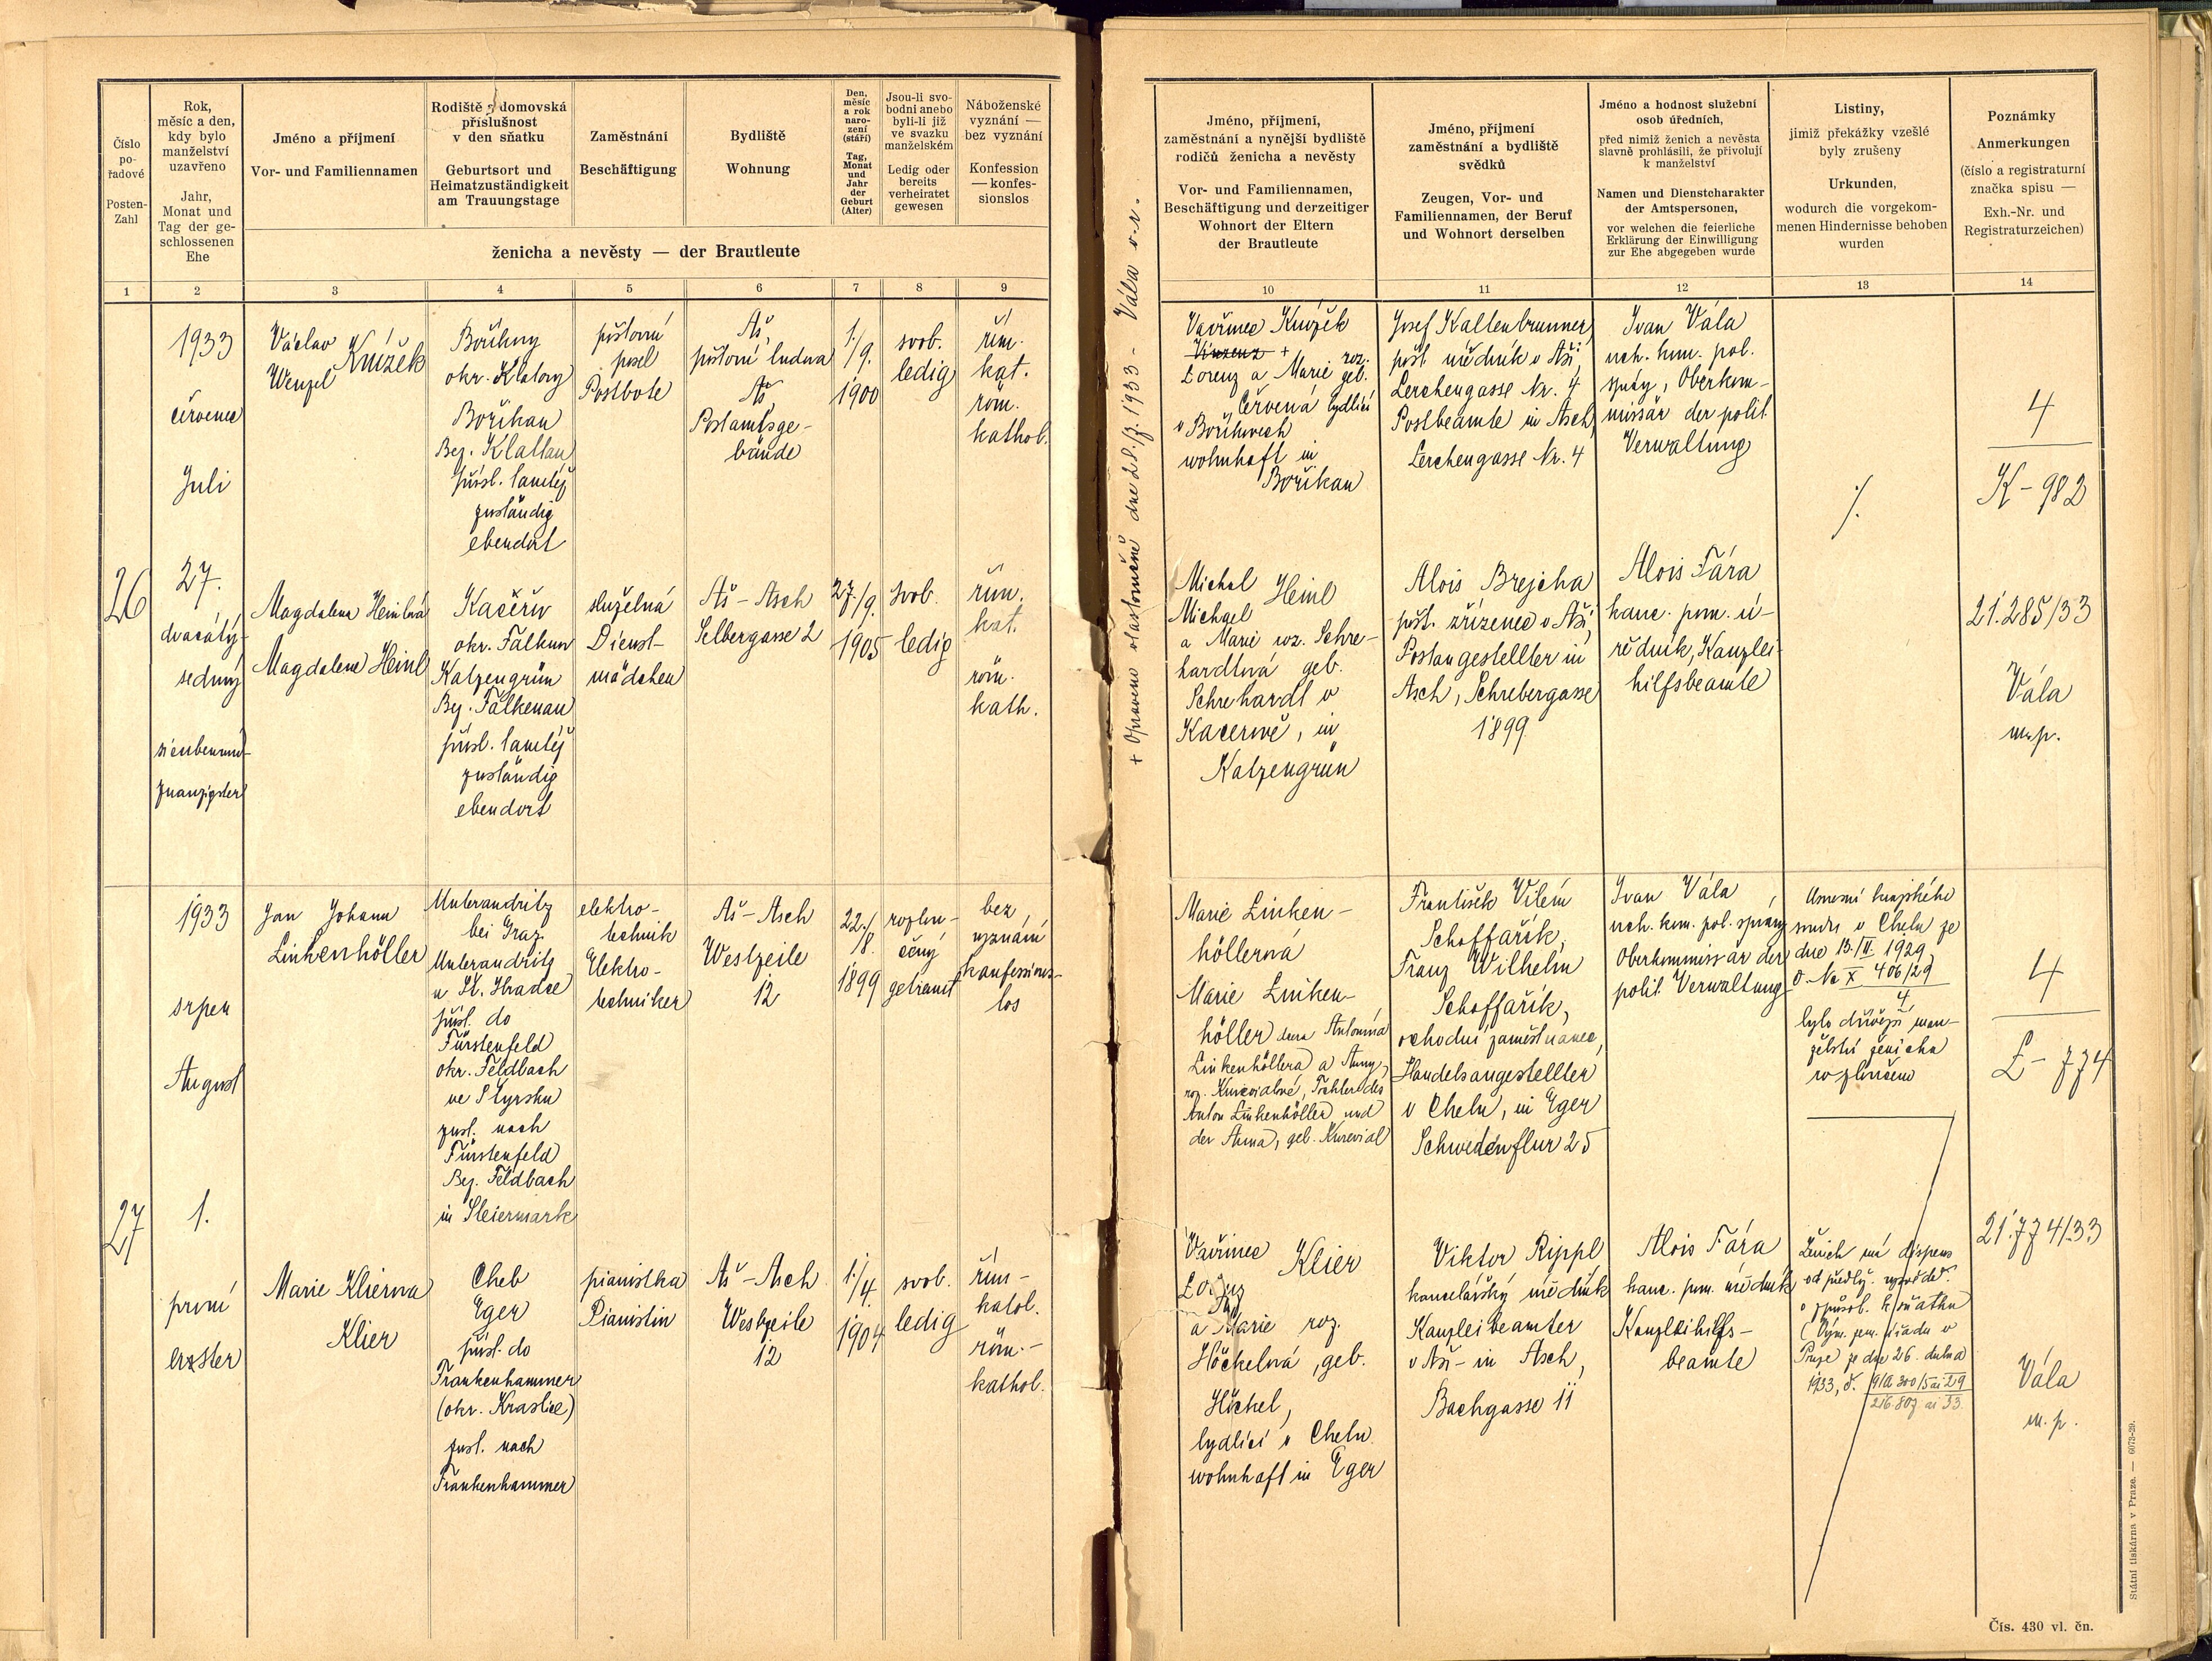 Číslo
po-
řadové
Posten-
Zahl
Rok,
měsíc a den,
kdy bylo
manželství
uzavřeno
Jahr,
Monat und
Tag der ge-
schlossenen
Ehe
Jméno a příjmení
Vor- und Familiennamen
Rodiště a domovská
příslušnost
v den sňatku
Geburtsort und
Heimatzuständigkeit
am Trauungstage
Zaměstnání
Beschäftigung
Bydliště
Wohnung
Den,
měsíc
a rok
naro-
zení
(stáří)
Tag,
Monat
und
Jahr
der
Geburt
(Alter)
Jsou-li svo-
bodni anebo
byli-li již
ve svazku
manželském
Ledig oder
bereits
verheiratet
gewesen
Náboženské
vyznání —
bez vyznání
Konfession
— konfes-
sionslos
ženicha a nevěsty — der Brautleute
1 2 3 4 5 6 7 8 9
26
1933
červenec
Juli
27.
dvacátý
sedmý
siebenund-
zwanzigster
Václav
Wenzel
Knížek
Bořikovy
okr. Klatovy
Bořikau
Bez. Klattau
přísl. tamtéž
zuständig
ebendort
poštovní
posel
Postbote
Aš,
poštovní budova
Aš,
Postamtsge-
bäude
1./
9.
1900
svob.
ledig
řím.
kat.
röm.
kathol.
Magdalena Heinlová
Magdalena Heinl
Kačeřiv
okr. Falknov
Katzengrün
Bez. Falkenau
přísl. tamtéž
zuständig
ebendort
služebná
Dienst-
mädchen
Aš - Asch
Selbergasse 2
27./
9.
1905
svob.
ledig
řím.
kat.
röm.
kath.
27
1933
srpen
August
1.
první
erster
Jan Johann
Linkenhöller
Unterandritz
bei Graz
Unterandritz
u Št. Hradce
přísl. do
Fürstenfeld
okr. Feldbach
ve Štyrsku
zust. nach
Fürstenfeld
Bez. Feldbach
in Steiermark
elektro-
technik
Elektro-
techniker
Aš - Asch
Westzeile
12
22./
8.
1899
rozlou-
čený
getrennt
bez
vyznání
konfessions-
los
Marie Klierová
Klier
Cheb
Eger
přísl. do
Frankenhammer
(okr. Kraslice)
zust. nach
Frankenhammer
pianistka
Pianistin
Aš - Asch
Westzeile
12
1./
4.
1904
svob.
ledig
řím-
katol.
röm.-
kathol.
+ Opraveno vlastoručně dne 28./7. 1933 - Vála v.r.
Jméno, příjmení,
zaměstnání a nynější bydliště
rodičů ženicha a nevěsty
Vor- und Familiennamen,
Beschäftigung und derzeitiger
Wohnort der Eltern
der Brautleute
Jméno, příjmení
zaměstnání a bydliště
svědků
Zeugen, Vor- und
Familiennamen, der Beruf
und Wohnort derselben
Jméno a hodnost služební
osob úředních,
před nimiž ženich a nevěsta
slavně prohlásili, že přivolují
k manželství
Namen und Dienstcharakter
der Amtspersonen,
vor welchen die feierliche
Erklärung der Einwilligung
zur Ehe abgegeben wurde
Listiny,
jimiž překážky vzešlé
byly zrušeny
Urkunden,
wodurch die vorgekom-
menen Hindernisse behoben
wurden
Poznámky
Anmerkungen
(číslo a registraturní
značka spisu —
Exh.-Nr. und
Registraturzeichen)
10 11 12 13 14
Vavřinec Knížek
Vinzenz +
Lorenz a Marie roz.
geb.
Červená bydlící
v Bořikovech
wohnhaft in
Bořikau
Josef Kaltenbrunner
pošt. úředník v Aši,
Lerchengasse Nr. 4
Postbeamte in Asch,
Lerchengasse Nr. 4
Ivan Vála
vrch. kom. pol.
správy, Oberkom-
missär der polit.
Verwaltung
./.
4
K - 982
21.285/33
Vála
m.p.
Michal
Michael
Heinl
a Marie roz. Schre-
hardtová geb.
Schrehardt v
Kačerově, in
Katzengrün
Alois Brejcha
pošt. zřízenec v Aši,
Postangestellter in
Asch, Schrebergasse
1899
Alois Fára
kanc. pom. ú-
ředník, Kanzlei-
hilfsbeamte
Marie Linken-
höllerová
Marie Linken-
höller dcera Antonína
Linkenhöllera a Anny,
roz. Kurevialové, Tochter des
Anton Linkenhöller und
der Anna, geb. Kurevial
František Vilém
Schoffařík,
Franz Wilhelm
Schoffařík,
obchodní zaměstnanec,
Handelsangestellter
v Chebu, in Eger
Schwedenflur 25
Ivan Vála
vrch. kom. pol. správy
Oberkommissär der
polit. Verwaltung
Usnesení krajského
soudu v Chebu ze
dne 13./II. 1929
č. Nc X 406/29
4
bylo dřívější man-
želství ženicha
rozloučeno
4
L - 774
21.774/33
Vála
m.p.
Vavřinec
Lorenz
Klier
a Marie roz.
Höckelová, geb.
Höckel,
bydlící v Chebu
wohnhaft in Eger
Viktor Rippl
kancelářský úředník
Kanzleibeamter
v Aši - in Asch,
Bachgasse 11
Alois Fára
kanc. pom. úředník
Kanzleihilfs-
beamte
Ženich má dispens
od předlož. vysvědč.
o způsob. k sňatku
(Výn. zem. úřadu v
Praze ze dne 26. dubna
1933, č.
216.807 ai 33
Čís. 430 vl. čn.
Státní tiskárna v Praze. — 6073-29.